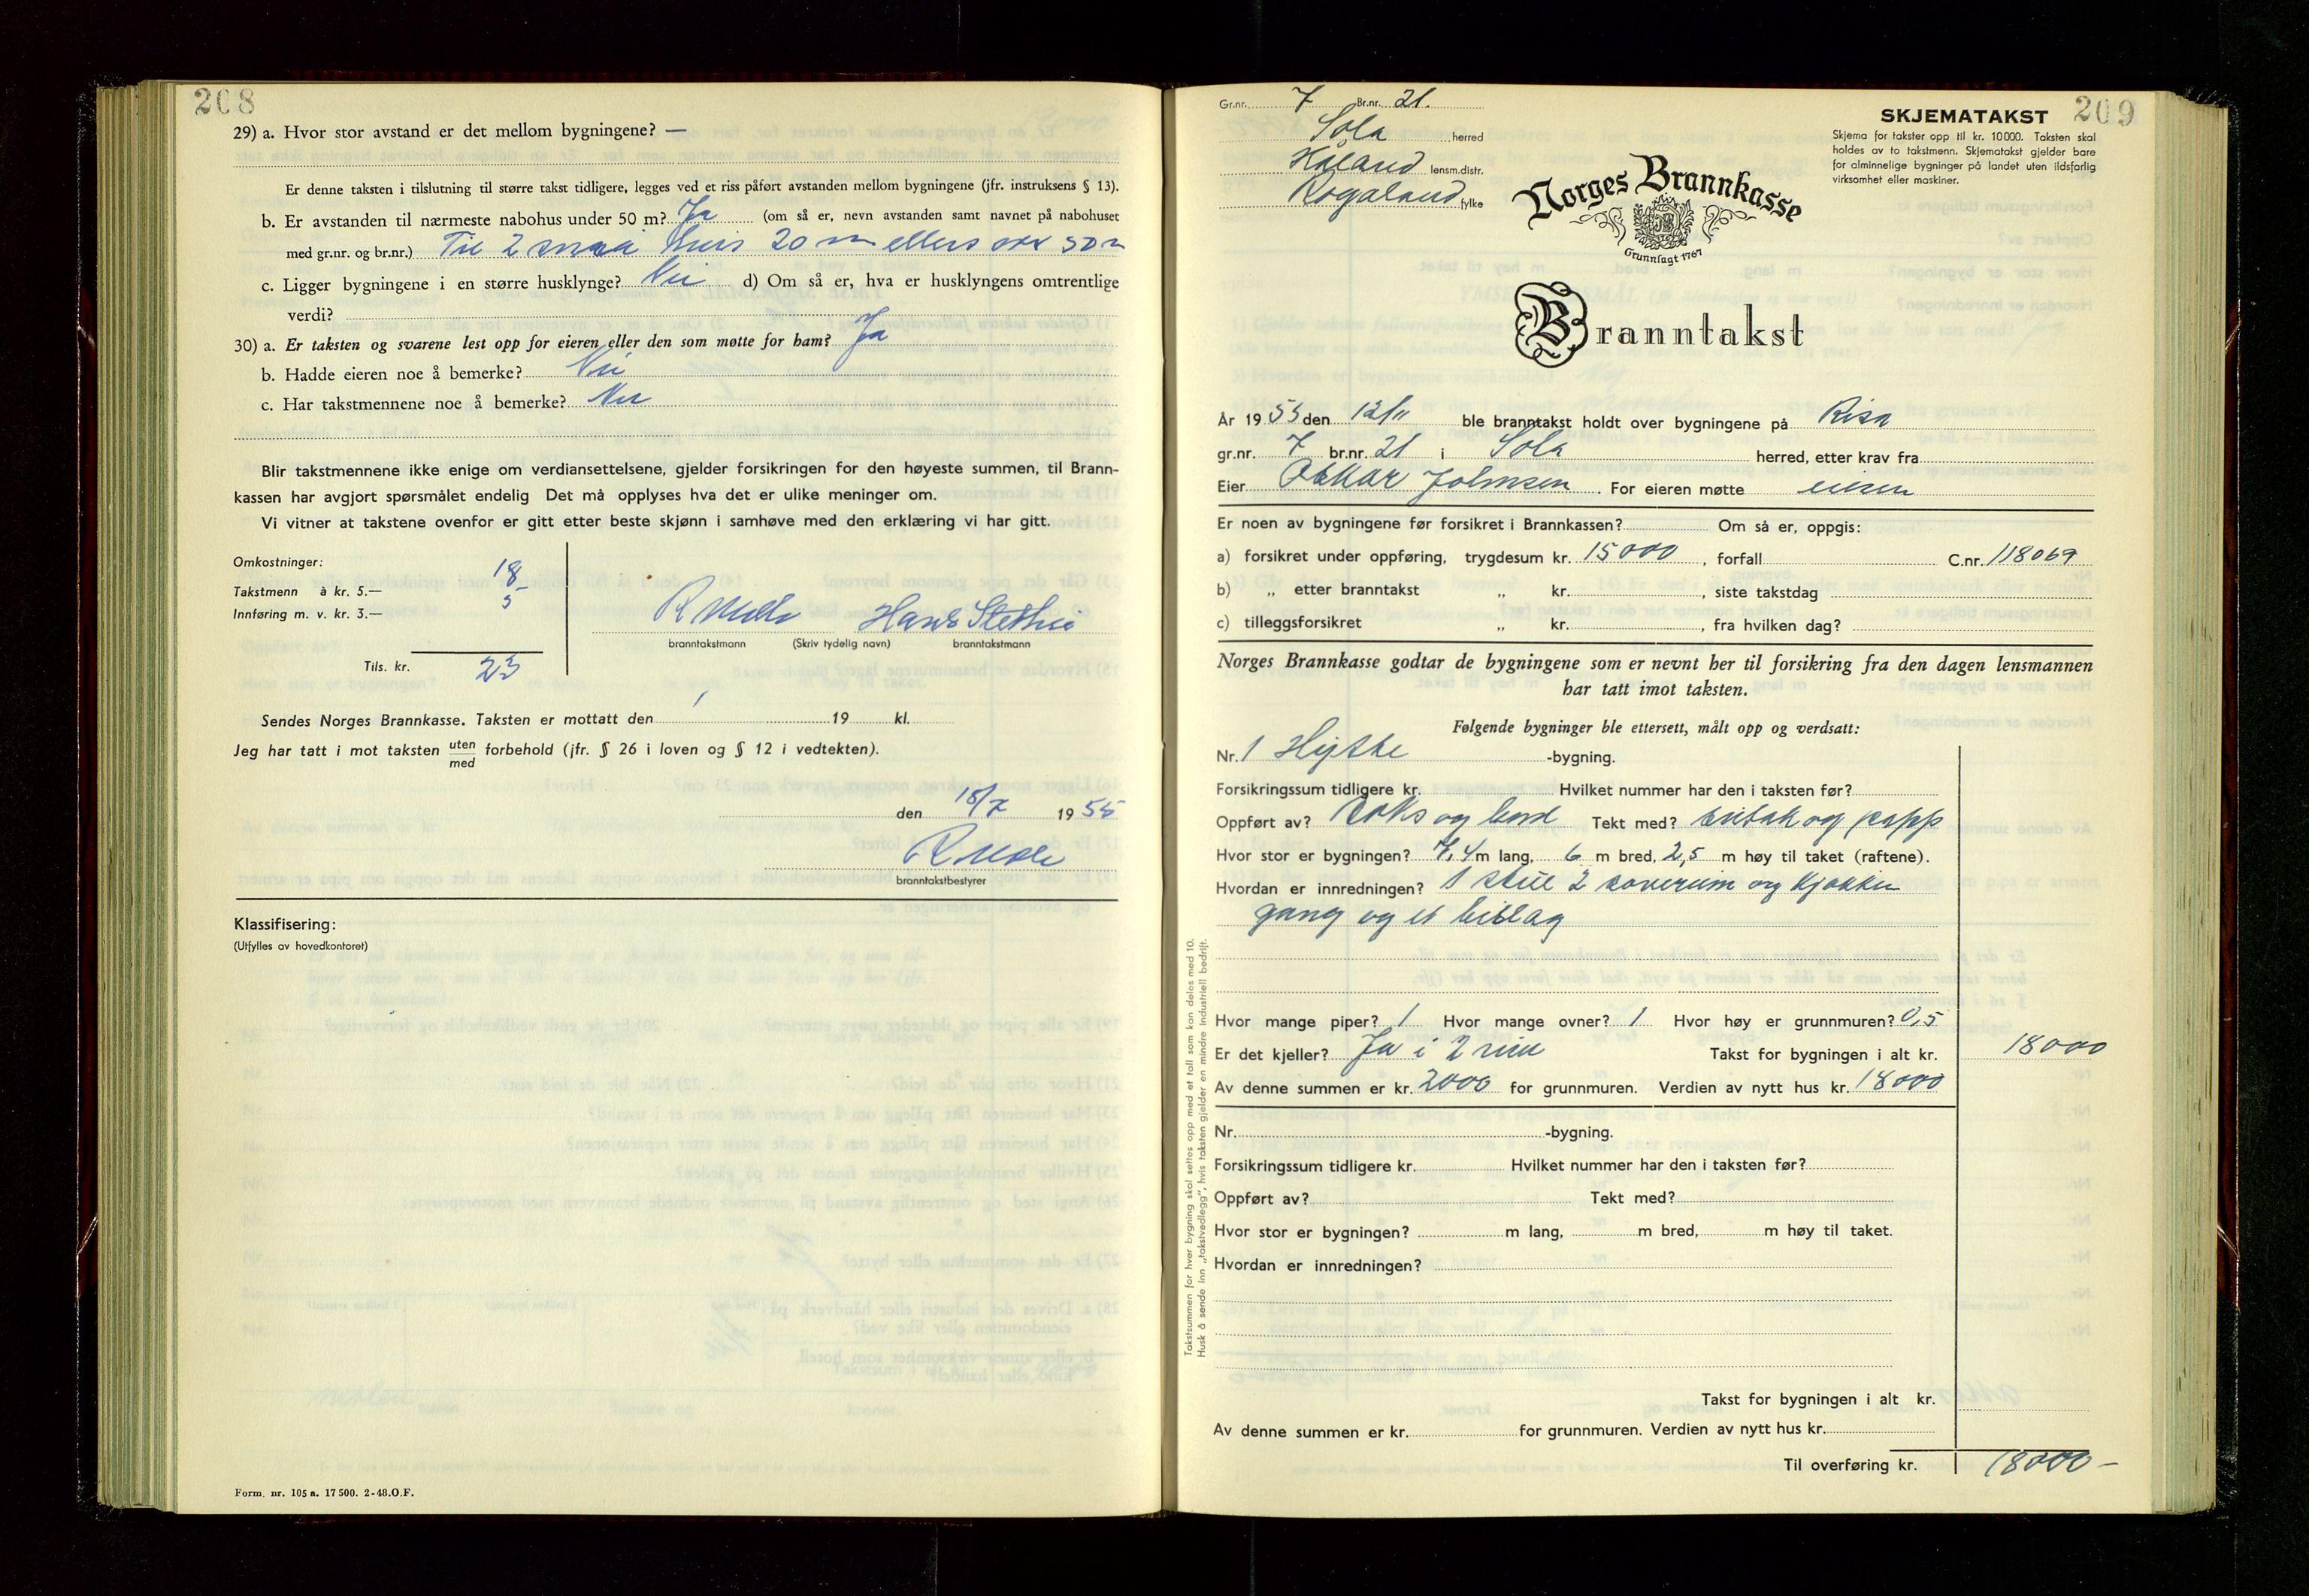 208
29) a. Hvor stor avstand er det mellom bygningene? —
Er denne taksten i tilslutning til større takst tidligere, legges ved et riss påført avstanden mellom bygningene (jfr. instruksens § 13).
b. Er avstanden til nærmeste nabohus under 50 m? Ja (om så er, nevn avstanden samt navnet på nabohuset
med gr.nr. og br.nr.) Til 2 smaa huis 20 m ellers 50 m
c. Ligger bygningene i en større husklynge? Nei d) Om så er, hva er husklyngens omtrentlige
verdi?
30) a. Er taksten og svarene lest opp for eieren eller den som møtte for ham? Ja
b. Hadde eieren noe å bemerke? Nei
c. Har takstmennene noe å bemerke? Nei
Blir takstmennene ikke enige om verdiansettelsene, gjelder forsikringen for den høyeste summen, til Brann-
kassen har avgjort spørsmålet endelig Det må opplyses hva det er ulike meninger om.
Vi vitner at takstene ovenfor er gitt etter beste skjønn i samhøve med den erklæring vi har gitt.
Omkostninger:
Takstmenn à kr. 5.— 18
Innføring m. v. kr. 3.— 5
Hans
branntakstmann (Skriv tydelig navn) branntakstmann
Tils. kr. 23
Sendes Norges Brannkasse. Taksten er mottatt den / 19 kl.
Jeg har tatt i mot taksten uten forbehold (jfr. § 26 i loven og § 12 i vedtekten).
med
den 18/7 1955
branntakstbestyrer
Klassifisering:
(Utfylles av hovedkontoret)
Form. nr. 105 a. 17 500. 2-48. O.F.
Gr.nr. 7 Br.nr. 21.
Sola herred
Håland lensm.distr.
Rogaland fylke
SKJEMATAKST 209
Skjema for takster opp til kr. 10 000. Taksten skal
holdes av to takstmenn. Skjematakst gjelder bare
for alminnelige bygninger på landet uten ildsfarlig
virksomhet eller maskiner.
Norges Brannkasse
Grunnlagt 1767
Branntakst
År 1955 den 12/11 ble branntakst holdt over bygningene på Risa
gr.nr. 7 br.nr. 21 i Sola herred, etter krav fra
Eier Oskar Johnsen. For eieren møtte eieren
Er noen av bygningene før forsikret i Brannkassen? Om så er, oppgis:
a) forsikret under oppføring, trygdesum kr. 15000, forfall C.nr. 118069
b) „ etter branntakst „ kr. , siste takstdag
c) tilleggsforsikret „ kr. , fra hvilken dag?
Norges Brannkasse godtar de bygningene som er nevnt her til forsikring fra den dagen lensmannen
har tatt imot taksten.
Følgende bygninger ble ettersett, målt opp og verdsatt:
Nr. 1 Hytte -bygning.
Forsikringssum tidligere kr. Hvilket nummer har den i taksten før?
Oppført av? og bord Tekt med? og papp
Hvor stor er bygningen? 7,4 m lang, 6 m bred, 2,5 m høy til taket (raftene).
Hvordan er innredningen? 1 stue 2 soverum og kjøkken
gang og et bislag
Hvor mange piper? 1 Hvor mange ovner? 1 Hvor høy er grunnmuren? 0,5
Er det kjeller? Ja i 2 rum Takst for bygningen i alt kr. 18000
Av denne summen er kr. 2000 for grunnmuren. Verdien av nytt hus kr. 18000
Nr. -bygning.
Forsikringssum tidligere kr. Hvilket nummer har den i taksten før?
Oppført av? Tekt med?
Hvor stor er bygningen? m lang, m bred, m høy til taket.
Hvordan er innredningen?
Takst for bygningen i alt kr.
Av denne summen er kr. for grunnmuren. Verdien av nytt hus kr.
Til overføring kr. 18000 –
Takstsummen for hver bygning skal settes opp med et tall som kan deles med 10.
Husk å sende inn „takstvedlegg", hvis taksten gjelder en mindre industriell bedrift.